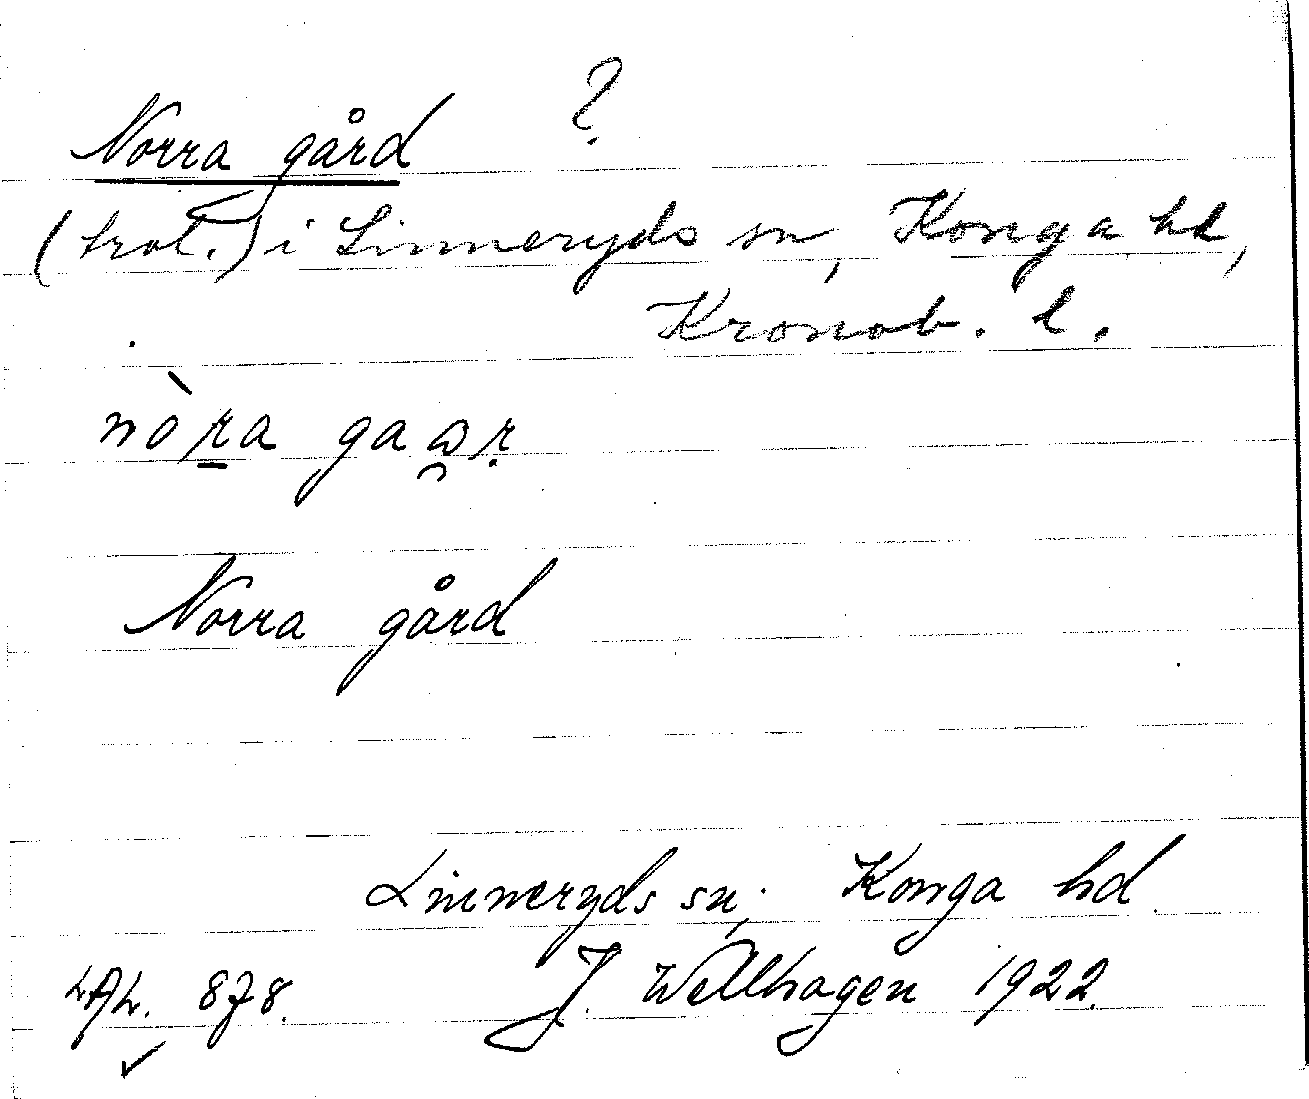 Norra gård ?
(trol.) i Linneryds sn, Konga hd,
Kronob. l.
nòra gaɷr
Norra gård
Linneryds sn; Konga hd.
J. Wellhagen 1922.
LAL. 878.